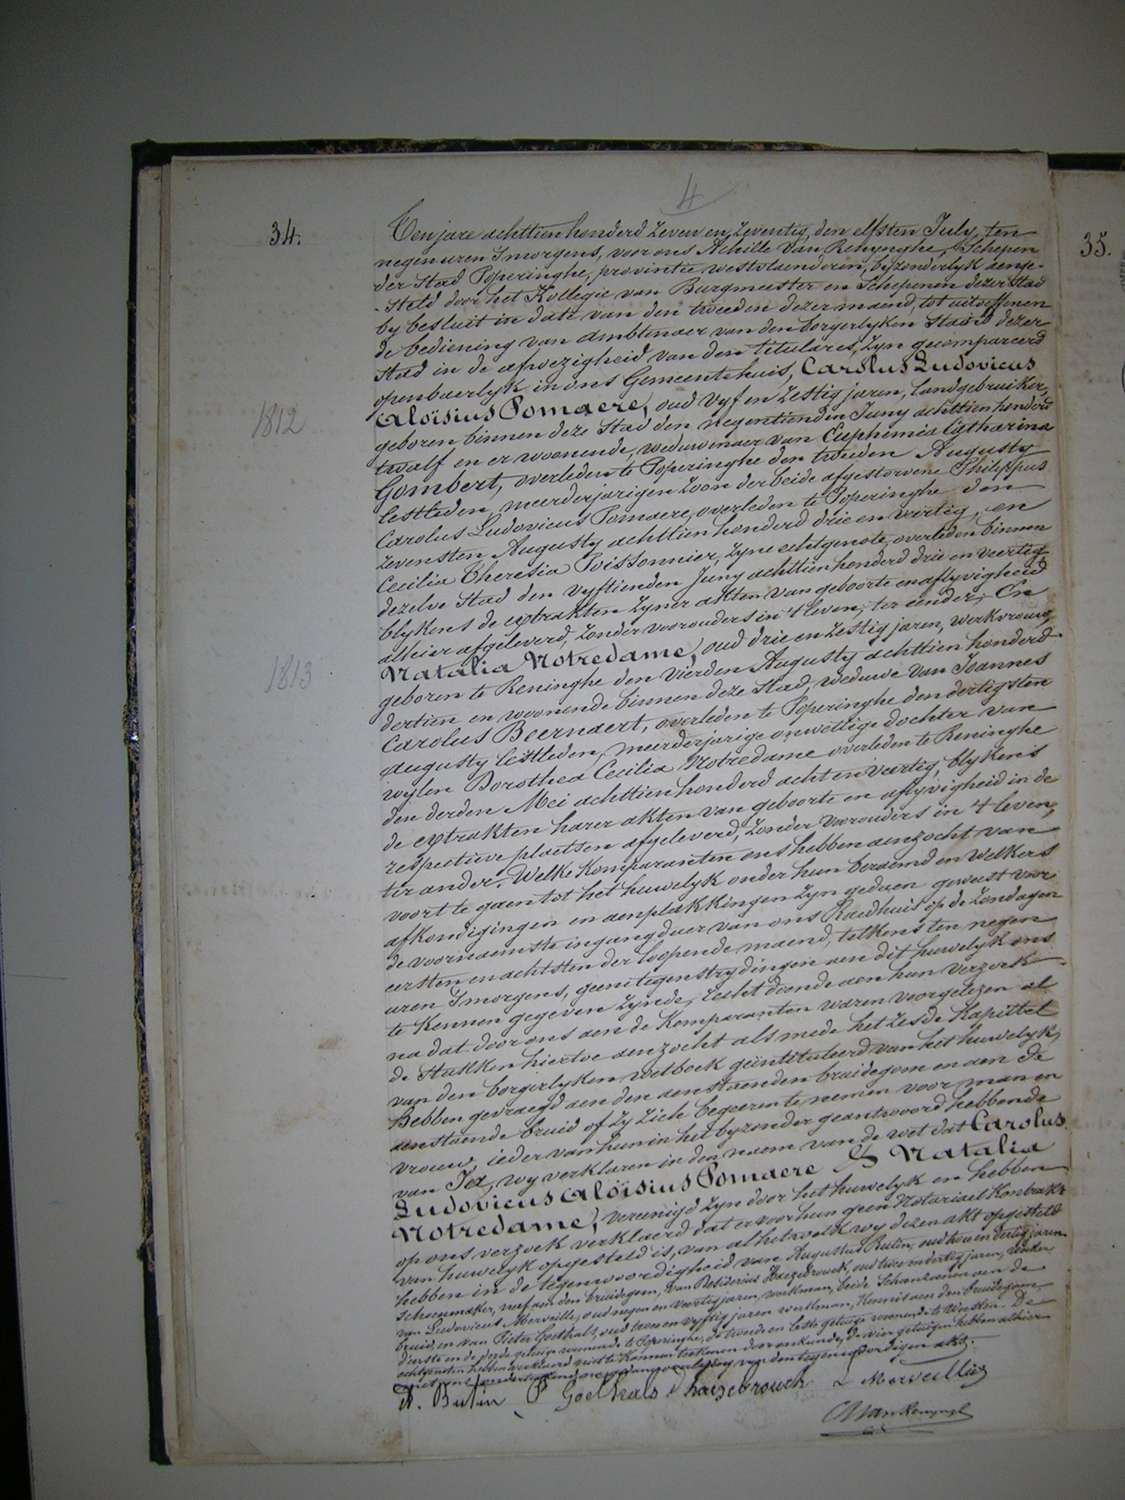 4
34.
35.
1812
1813
Ten jare achttien honderd zeven en zeventig, den elfsten July, ten
negen uren 's morgens, voor ons Achille Van Renynghe, Schepen
der Stad Poperinghe, provintie westvlaenderen, byzonderlyk aenge-
steld door het Kollegie van Burgmeester en Schepenen dezer Stad
by besluit in date van den tweeden dezer maend, tot uitoeffenen
de bediening van ambtenaer van den borgerlyken Stand dezer
Stad in de afwezigheid van den titularis, zyn gecompareerd
openbaerlyk in ons Gemeentehuis, Carolus Ludovicus
Aloïsius Pomaere, oud vyf en zestig jaren, landgebruiker,
geboren binnen deze Stad den negentienden Juny achttien honderd
twalf en er woonende, weduwenaer van Euphemia Catharina
Gombert, overleden te Poperinghe den tweeden Augusty
lestleden, meerderjarigen zoon der beide afgestorvene Philippus
Carolus Ludovicus Pomaere, overleden te Poperinghe den
zevensten Augusty achttien honderd drie en veertig, en
Cecilia Theresia Poissonnier, zyne echtgenote, overleden binnen
dezelve Stad den vyftienden Juny achttien honderd drie en veertig
blykens de extrakten zyner akten van geboorte en aflyvigheid
alhier afgeleverd, zonder voorouders in 't leven; ter eender; En
Natalia Notredame, oud drie en zestig jaren, werkvrouw,
geboren te Reninghe den vierden Augusty achttien honderd
dertien en woonende binnen deze Stad, weduwe van Joannes
Carolus Beernaert, overleden te Poperinghe den dertigsten
Augusty lestleden, meerderjarige onwettige dochter van
wylen Dorothea Cecilia Notredame overleden te Reninghe
den derden Mei achttien honderd acht en veertig, blykens
de extrakten harer akten van geboorte en aflyvigheid in de
respectieve plaetsen afgeleverd, zonder voorouders in 't leven,
ter ander. Welke Komparanten ons hebben aenzocht van
voort te gaen tot het huwelyk onder hun beraemd en welkers
afkondigingen en aenplakkingen zyn gedaen geweest voor
de voornaemste ingangdeur van ons Raedhuis op de zondagen
eersten en achtsten der loopende maend, telkens ten negen
uren 's morgens, geene tegenstrydingen aen dit huwelyk ons
te kennen gegeven zynde, recht doende aen hun verzoek
na dat door ons aen de Komparanten waren voorgelezen al
de stukken hiertoe aenzocht als mede het zesde Kapittel
van den borgerlyken wetboek geïntituleerd van het huwelyk,
Hebben gevraegd aen den aenstaenden bruidegom en aen de
aenstaende bruid of zy zich begeeren te nemen voor man en
vrouw, ieder van hun in het byzonder geantwoord hebbende
van Ja, wy verklaren in den naem van de wet dat Carolus
Ludovicus Aloïsius Pomaere & Natalia
Notredame, vereenigd zyn door het huwelyk en hebben
op ons verzoek verklaerd dat er voor hun geen Notarieel Kontrakt
van huwelyk opgesteld is, van al hetwelk wy dezen akt opgesteld
hebben in de tegenwoordigheid van Augustus Butin, oud twee en dertig jaren
schoenmaker, neef aen den bruidegom, van Desiderius Haezebrouck, oud twee en dertig jaren,
van Ludovicus Merveillie, oud negen en veertig jaren, werkman, beide aen de
bruid, en van Pieter Goethals, oud twee en vyftig jaren werkman, Kennis aen den bruidegom,
A. Butin P Goethals D haezebrouck L Merveillie
AVanRenynghe